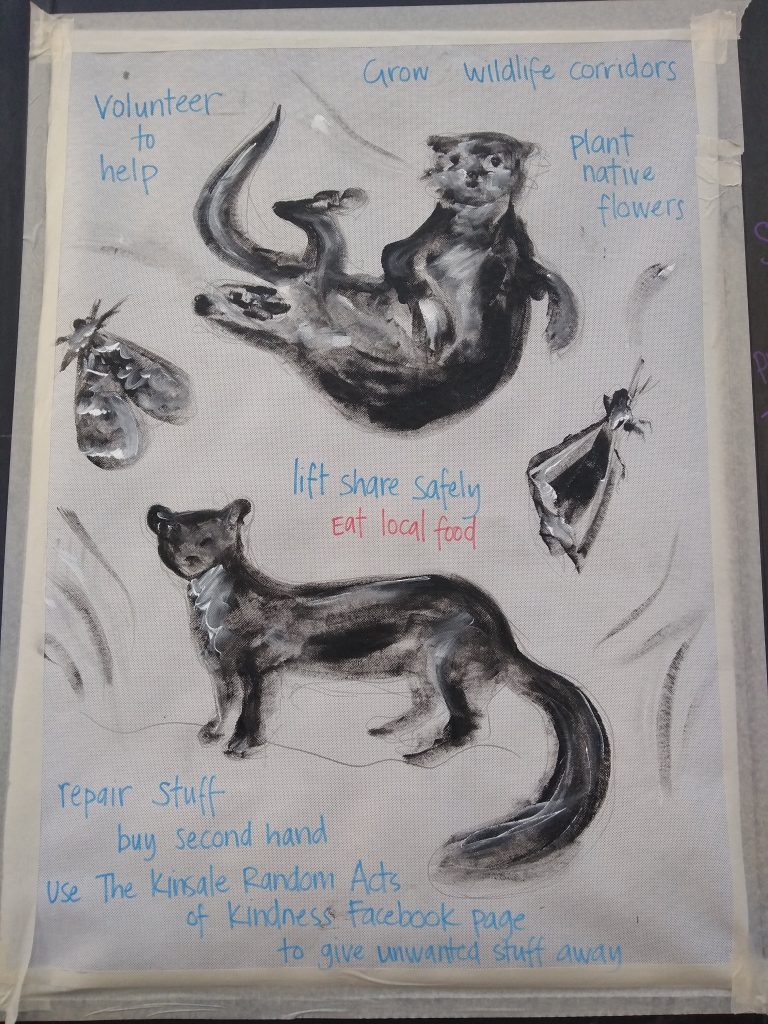 Grow wildlife corridors
Volunteer
to
help
plant
native
flowers
lift share safely
Eat local food
repair stuff
buy second hand
use The Kinsale Random Acts
of Kindness Facebook page
to give unwanted stuff away